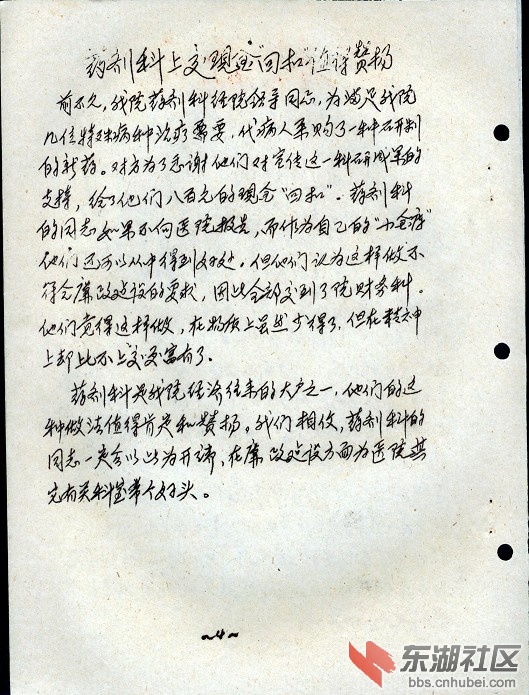 药剂科上交现金"回扣"值得赞扬
前不久，我院药剂科经院领导同志，为满足我院
几位特殊病种治疗需要，代病人采购了一种研制
的新药。对方为了感谢他们对宣传这一科研成果的
支持，给了他们八百元的现金"回扣"。药剂科
的同志如果不向医院报告，而作为自己的"小金库"
他们还可以从中得到好处。但他们认为这样做不
符合廉政建设的要求，因此全部交到了院财务科。
他们觉得这样做，在物质上虽然少得了，但在精神
上却比不上交更富有了。
药剂科是我院经济往来的大户之一，他们的这
种做法值得肯定和赞扬。我们相信，药剂科的
同志一定会以此为开端，在廉政建设方面为医院其
它有关科室带个好头。
~4~
东湖社区
bbs.cnhubei.com